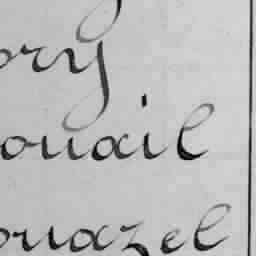 ory
ouail
ouazel